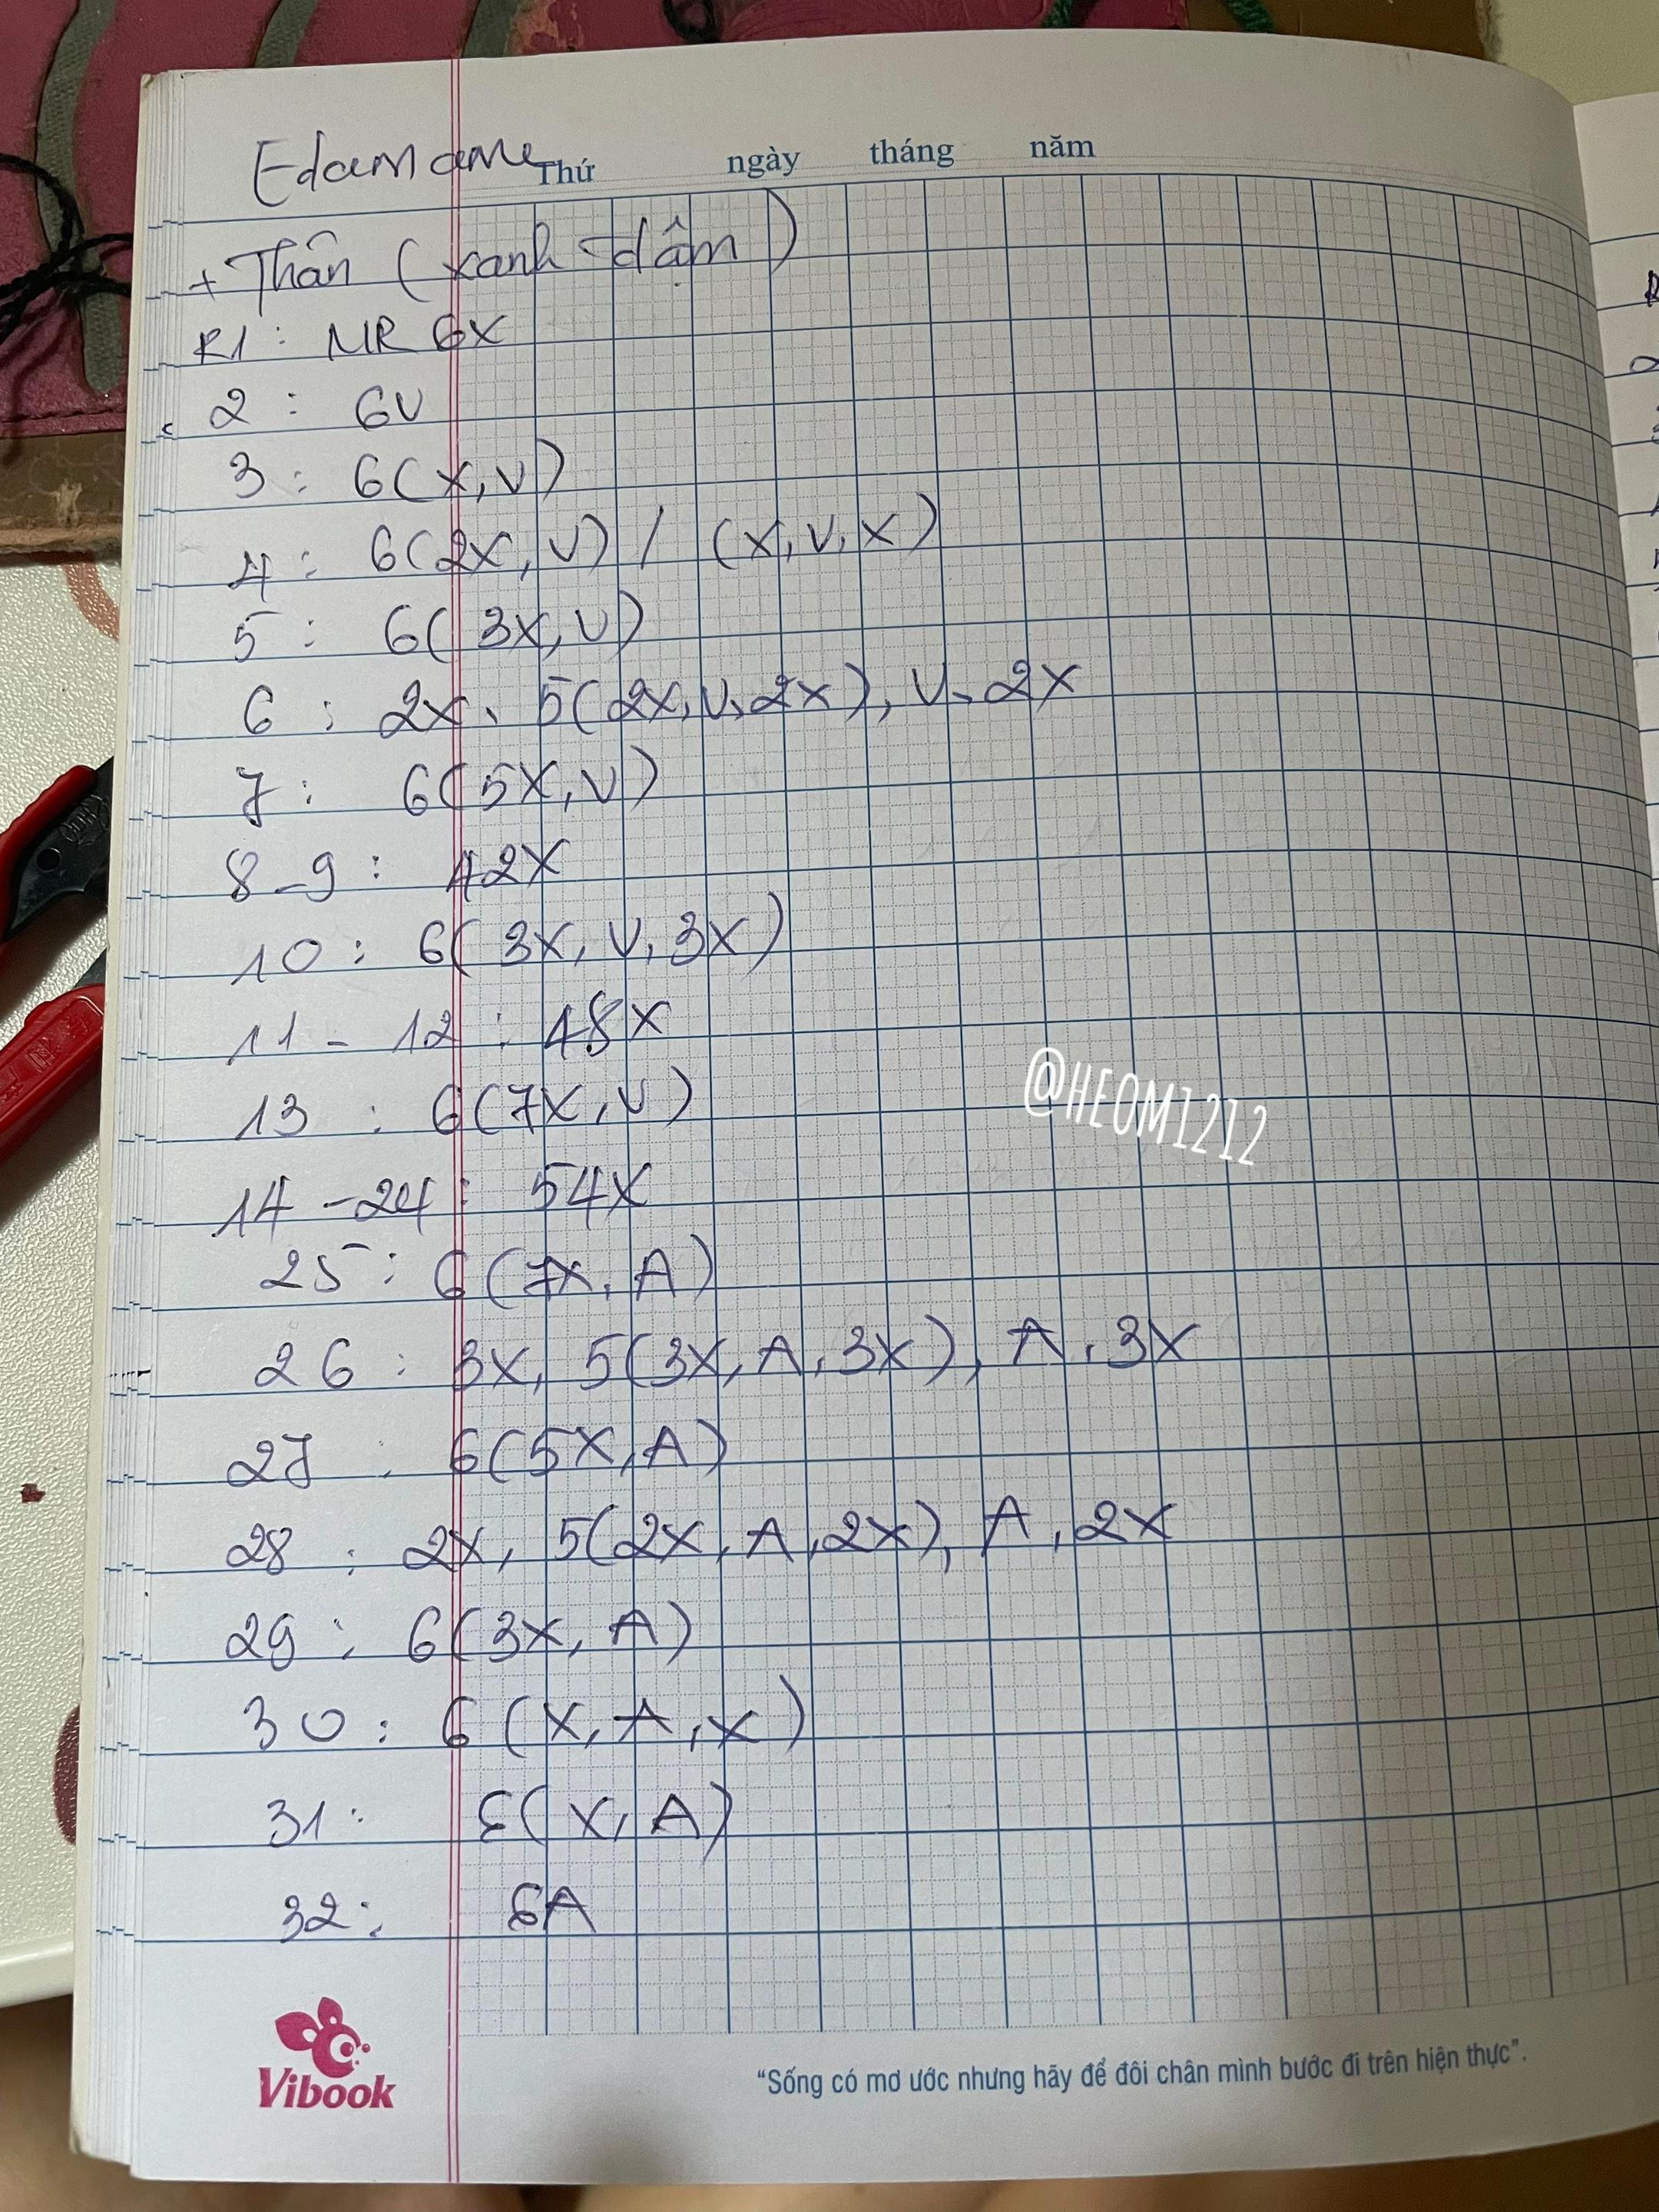 Edamame
Thứ ngày tháng năm
+ Thân ( xanh đậm )
R1 : MR 6X
2 : 6V
3 : 6(X,V)
4 : 6(2X,V) / (X,V,X)
5 : 6(3X,V)
6 : 2X, 5(2X,V,2X), V, 2X
7 : 6(5X,V)
8-9 : 42X
10 : 6(3X,V,3X)
11 - 12 : 48X
13 : 6(7X,V)
14 - 24 : 54X
25 : 6(7X,A)
26 : 3X, 5(3X,A,3X), A, 3X
27 : 6(5X,A)
28 : 2X, 5(2X,A,2X), A, 2X
29 : 6(3X,A)
30 : 6(X,A,X)
31 : 6(X,A)
32 : 6A
@HEOMI212
Vibook
"Sống có mơ ước nhưng hãy để đôi chân mình bước đi trên hiện thực".